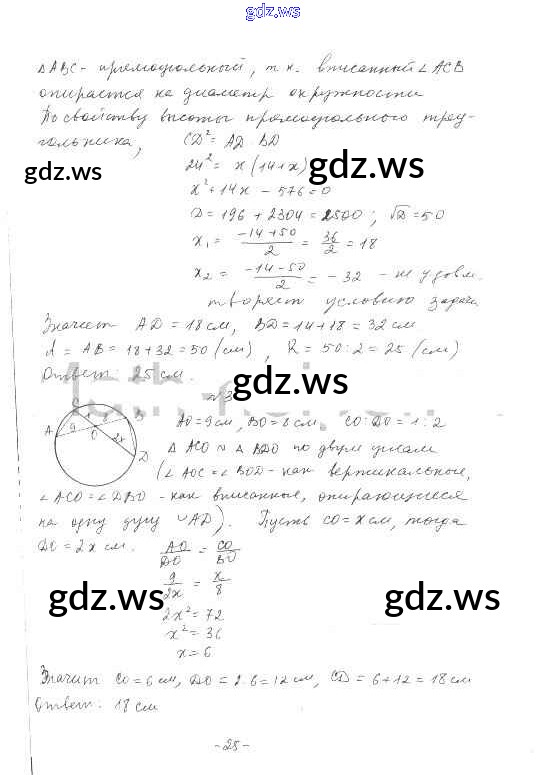 gdz.ws
△ABC - прямоугольный, т.к. вписанный ∠ACB
опирается на диаметр окружности
По свойству высоты прямоугольного треу-
гольника, CD² = AD·BD
gdz.ws
24² = x(14+x)
gdz.ws
x²+14x - 576=0
D = 196 + 2304 = 2500 ; √D = 50
x₁ = -14+50/2 = 36/2 = 18
x₂ = -14-50/2 = -32 - не удовл.
творяет условию задачи
Значит AD = 18 см, BD = 14+18 = 32 см
d = AB = 18+32 = 50 (см), R = 50:2 = 25 (см)
Ответ: 25 см.
gdz.ws
№3
C
A
B
O
D
9
8
x
2x
AO=9см, BO=8см, CO:DO=1:2
△ACO ∾ △BDO по двум углам
(∠AOC=∠BOD - как вертикальные,
∠ACO=∠DBO - как вписанные, опирающиеся
на одну дугу ∪AD). Пусть CO=x см, тогда
DO = 2x см. AO/DO = CO/BO
gdz.ws
gdz.ws
9/2x = x/8
2x²=72
x²=36
x=6
Значит CO=6 см, DO=2·6=12 см, CD=6+12=18 см
Ответ: 18 см
-25-
gdz.ws